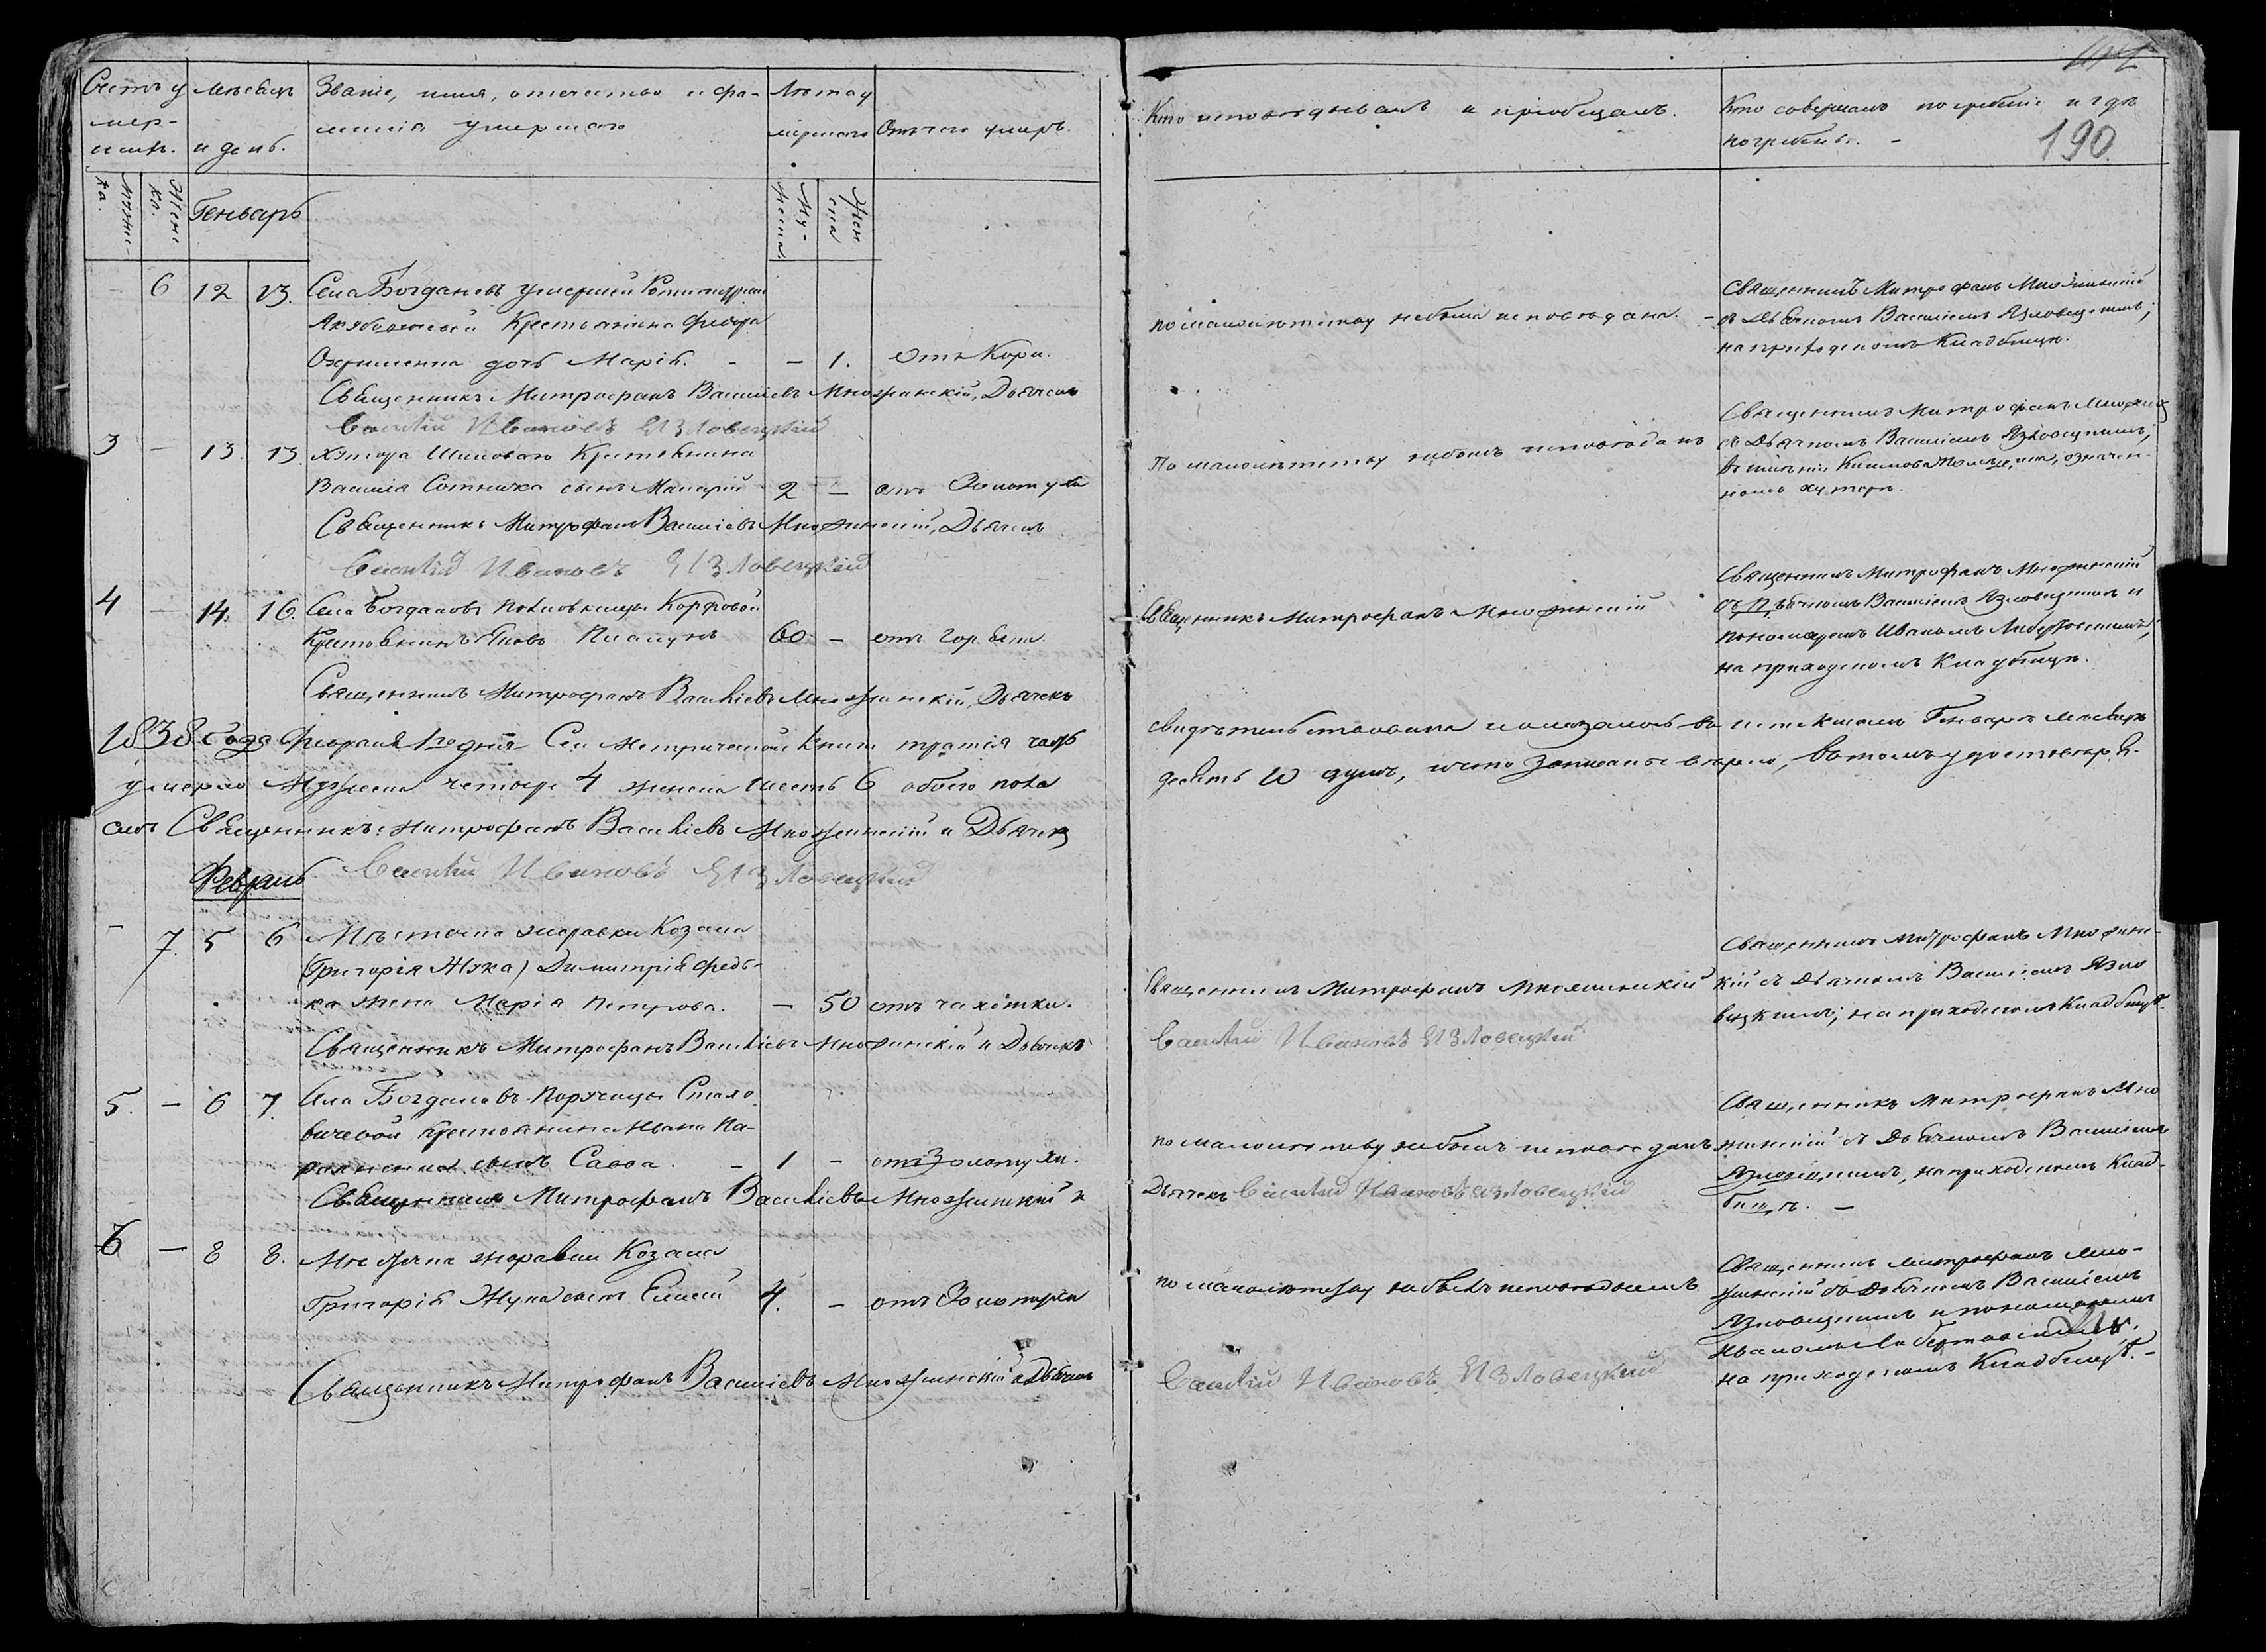 Счетъ у
мер-
шихъ.
Мѣсяцъ
и день.
Званіе, имя, отечество и фа-
милія умершаго
Лѣта у
мершаго
Отъ чего умеръ.
Мужес-
ка.
Женс
ка.
Генварь
Му-
жеска
Жен
ска
6 12 13. Села Богдановъ умершей
Крестьянина Федора
дочь Марія. - - 1. Отъ Кори.
Священникъ Митрофанъ Василіевъ Множинскій, Дьячекъ
Василій Ивановъ Язловецкий
3 - 13. 13. Хутора Крестьянина
Василія Сотника сынъ Макарій 2 - отъ Золотухи
Священникъ Митрофанъ Василіевъ Множинскій, Дьячекъ
Василий Ивановъ Язловецкий
4 - 14. 16. Села Богдановъ Полковницы Корфовой
Крестьянинъ Яковъ 60 - отъ горячки.
Священникъ Митрофанъ Василіевъ Множинскій, Дьячекъ
1838 Года Февраля 1го дня Сей Метрической Книги третія часть
умерло Мужеска четыре 4 женска шесть 6 обоего пола
емъ Священникъ Митрофанъ Василіевъ Множинскій и Дьячекъ
Василий Ивановъ Язловецкий
Февраль
- 7. 5 6 Мѣстечка Журавки Козака
(Григорія Жука) Димитрія Федь-
ка жена Марія Петрова. - 50 отъ чахотки.
Священникъ Митрофанъ Василіевъ Множинскій и Дьячекъ
5. - 6 7. Села Богдановъ Поручицы
вичевой Крестьянина Ивана Па-
сынъ Савва. - 1 - отъ Золотухи.
Священникъ Митрофанъ Василіевъ Множинскій и
6 - 8 8. Мѣстечка Журавки Козака
Григорія Жука сынъ Елисей 4. - отъ Золотухи
Священникъ Митрофанъ Василіевъ Множинскій и Дьячекъ
190
Кто исповѣдывалъ и пріобщалъ.
Кто совершалъ погребеніе и гдѣ
погребенъ. -
по малолѣтству небыла исповѣдана. -
Священникъ Митрофанъ Множинскій
съ Дьячкомъ Василіемъ Язловецкимъ,
на приходскомъ Кладбищѣ.
По малолѣтству небылъ исповѣданъ
Священникъ Митрофанъ Множинс
съ Дьячкомъ Василіемъ Язловецкимъ,
означен-
номъ хуторѣ.
Священникъ Митрофанъ Множинскій
Священникъ Митрофанъ Множинскій
съ Дьячкомъ Василіемъ Язловецкимъ и
пономаремъ Иваномъ
на приходскомъ Кладбищѣ.
свидѣтельствована и оказалось въ истекшемъ Генварѣ мѣсяцѣ
десять 10 душъ, что записаны вѣрно, въ томъ удостовѣря-
Священникъ Митрофанъ Множинскій
Василий Ивановъ Язловецкий
Священникъ Митрофанъ Множинс-
кій съ Дьячкомъ Василіемъ Язло
вецкимъ, на приходскомъ Кладбищѣ.
по малолѣтству небылъ исповѣданъ
Дьячекъ Василий Ивановъ Язловецкий
Священникъ Митрофанъ Мно
жинскій съ Дьячкомъ Василіемъ
Язловецкимъ, на приходскомъ Клад-
бищѣ. -
по малолѣтству небылъ исповѣданъ
Василий Ивановъ Язловецкий
Священникъ Митрофанъ Мно-
жинскій съ Дьячкомъ Василіемъ
Язловецкимъ и пономаремъ
Иваномъ
на приходскомъ Кладбищѣ. -